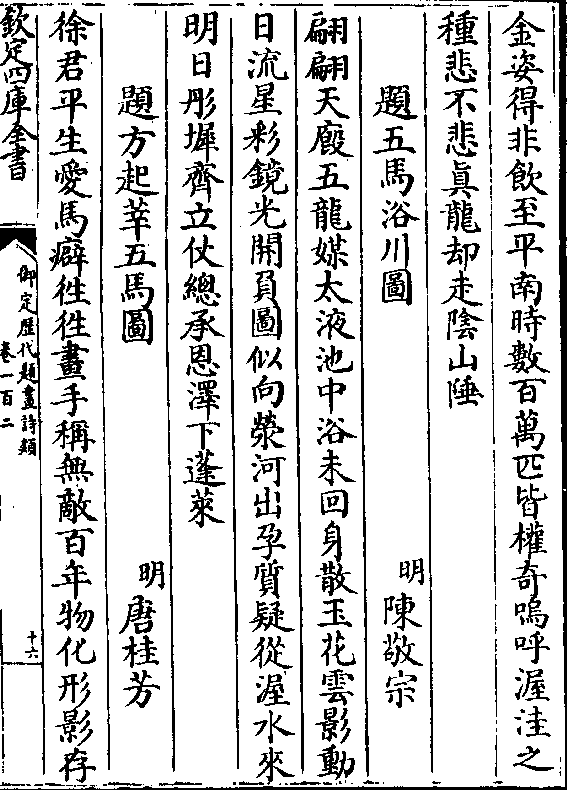 金姿得非飲至平南時數百萬匹皆權奇嗚呼渥洼之
種悲不悲真龍却走陰山陲
題五馬浴川圖
明 陳敬宗
翩翩天廐五龍媒太液池中浴未回身散玉花雲影動
日流星彩鏡光開負圖似向滎河出孕質疑從渥水來
明日彤墀齊立仗總承恩澤下蓬萊
題方起莘五馬圖
明 唐桂芳
徐君平生愛馬癖徃徃畫手稱無敵百年物化形影存
欽定四庫全書
御定歷代題畫詩類
卷一百二
十六